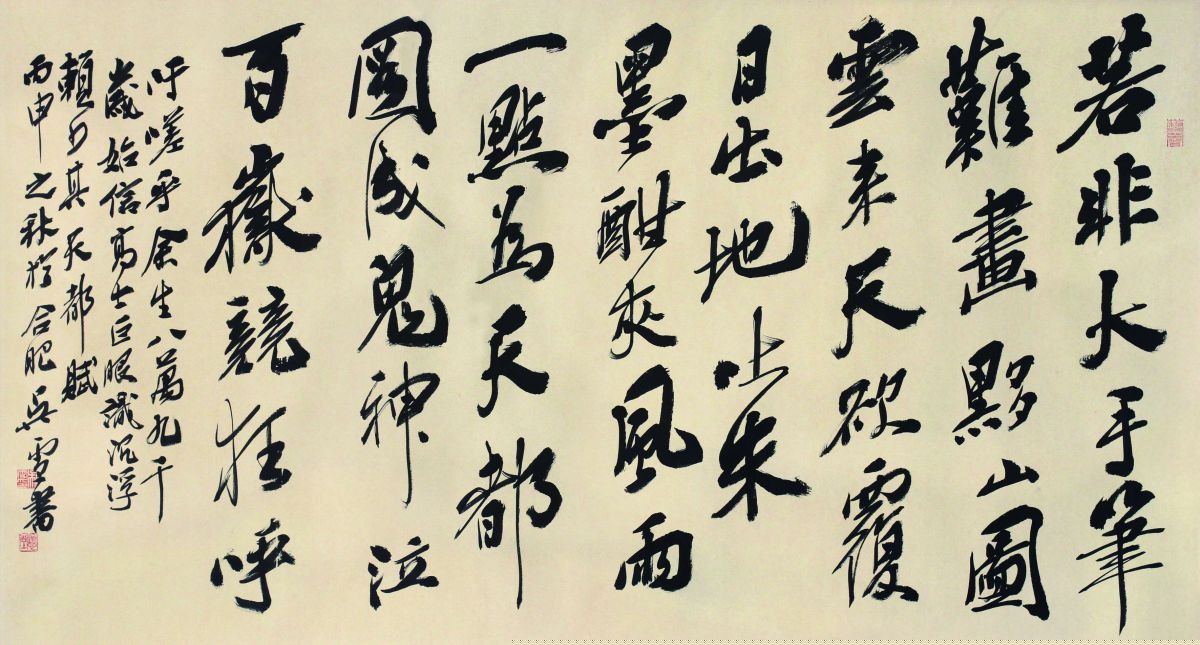 若非大手筆
難畫黟山圖
雲来天欲覆
日出地上朱
墨酣夾風雨
一點為天都
圖成鬼神泣
百嶽競狂呼
吁嗟乎余生八萬九千
歲始信高士巨眼識沉浮
賴少其天都賦
丙申之秋於合肥吴雪書